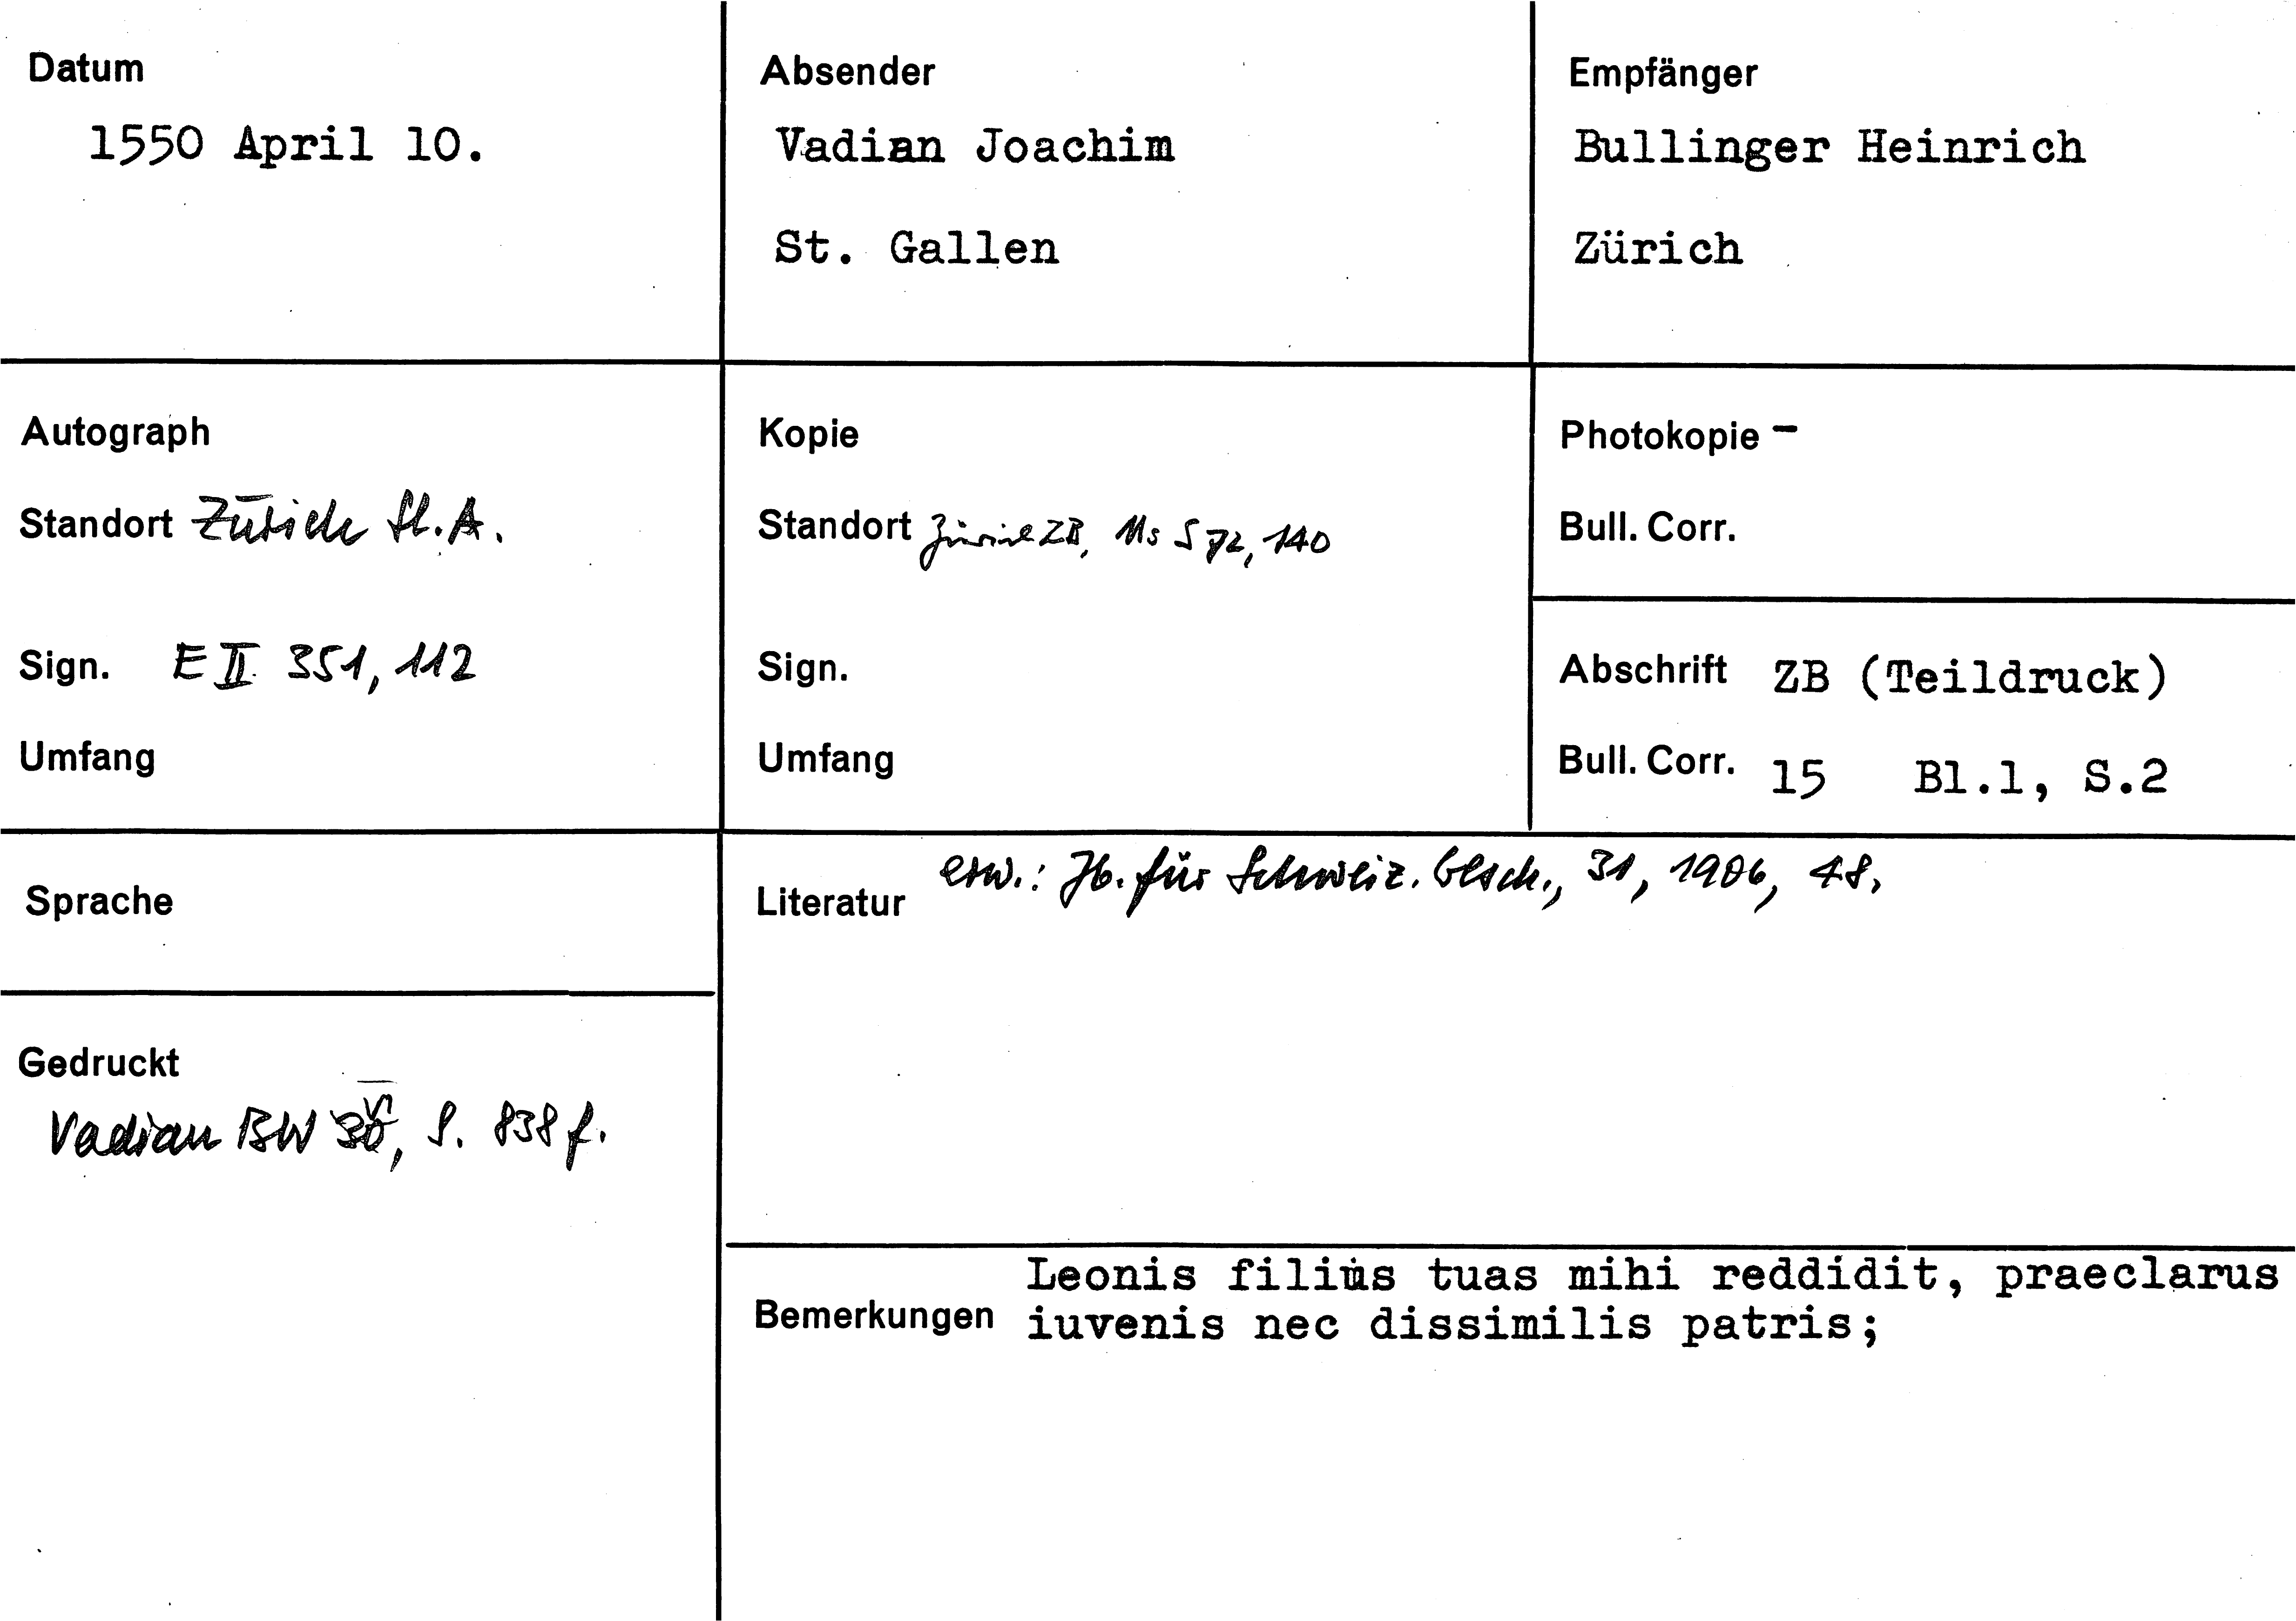 Datum
1550 April 10.
Absender
Vadian Joachim
St. Gallen
Empfänger
Bullinger Heinrich
Zürich
Autograph
Standort Zürich St.A.
Sign. E II 351, 112
Umfang
Kopie
Standort Zürich ZB, Ms S 72, 140
Sign.
Umfang
Photokopie -
Bull. Corr.
Abschrift ZB (Teildruck)
Bull. Corr. 15 Bl.1, S.2
Sprache
Gedruckt
Vadian BW VI, S. 838 f.
Literatur erw.: Jb. für Schweiz. Gesch., 31, 1906, 48.
Bemerkungen
Leonis filius tuas mihi reddidit, praeclarus
iuvenis nec dissimilis patris;